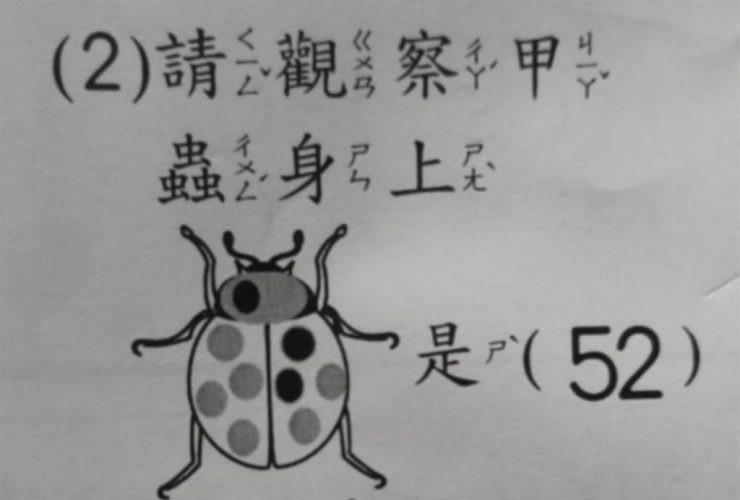 (2)請ㄑㄧㄥˇ觀ㄍㄨㄢ察ㄔㄚˊ甲ㄐㄧㄚˇ
蟲ㄔㄨㄥˊ身ㄕㄣ上ㄕㄤˋ
是ㄕˋ(52)